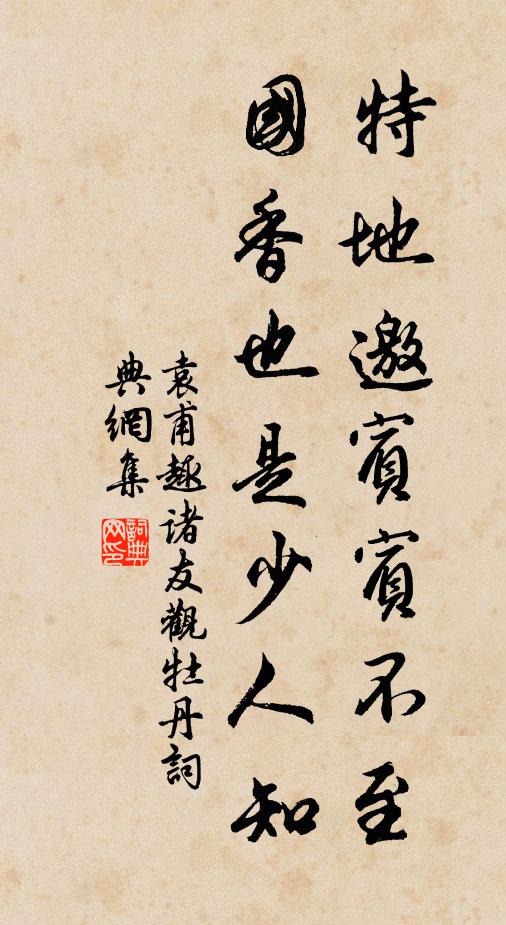 特地邀賓賓不至
國香也是少人知
袁甫趣諸友觀牡丹詞
典網集
詞典網印